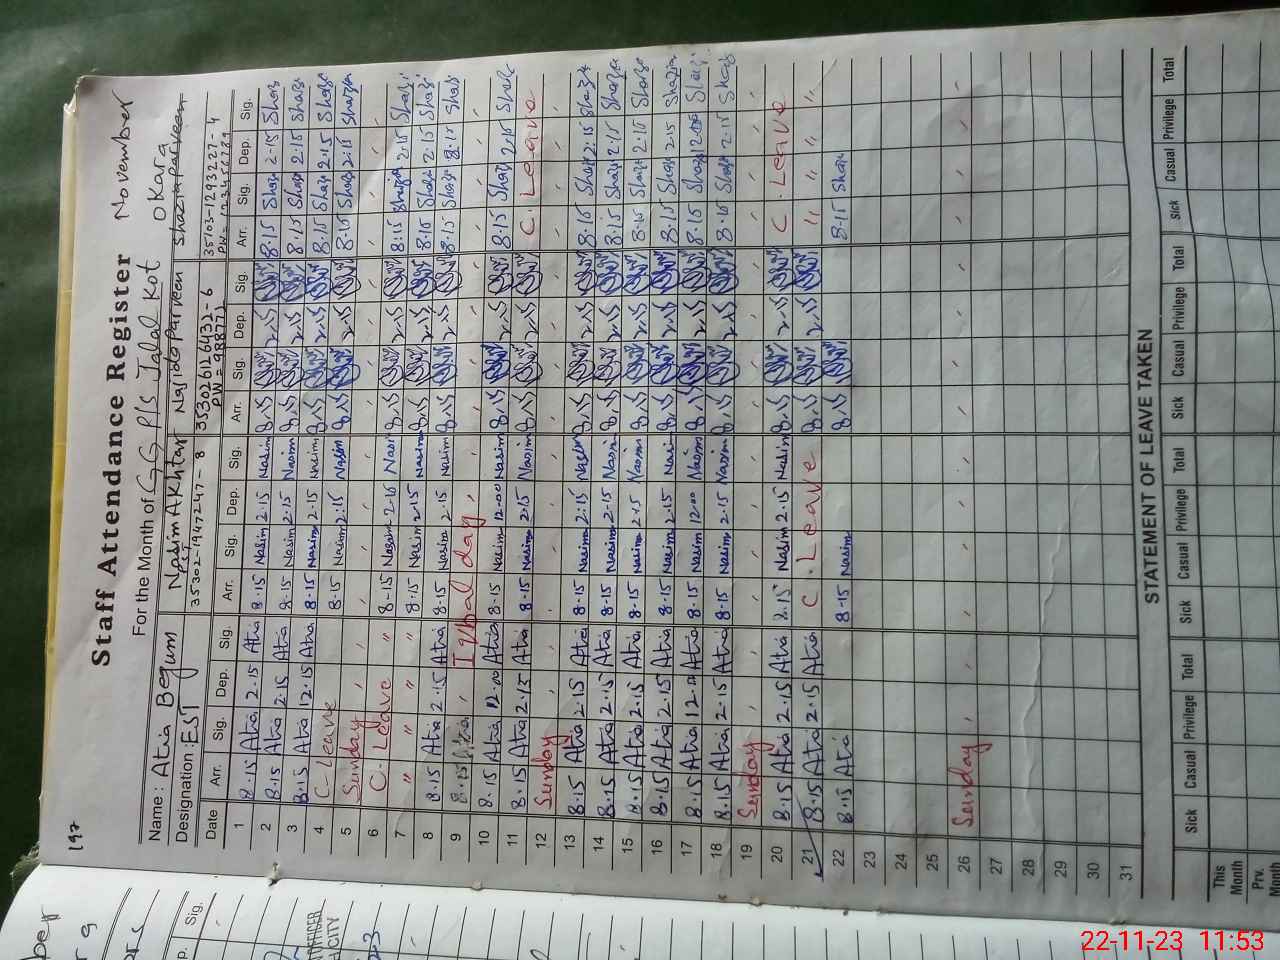 197
Staff Attendance Register
For the Month of GG P/S Jalal Kot Okara November
Name : Atia Begum Nasim Akhtar Nasido Parveen Shazia Parveen
Designation : EST PST
35302-1947247-8 353026126432-6 35103-1293227-4
Date Arr. Sig. Dep. Sig. Arr. Sig. Dep. Sig. Arr. Sig. Dep. Sig. Arr. Sig. Dep. Sig.
1 8.15 Atia 2.15 Atia 8-15 Nasim 2.15 Nasim 8.15 2.15 8.15 Shazi 2.15 Shazi
2 8.15 Atia 2.15 Atia 8-15 Nasim 2.15 Nasim 8.15 2.15 8.15 Shazi 2.15 Shazi
3 8.15 Atia 12.15 Atia 8-15 Nasim 2.15 Nasim 8.15 2.15 8.15 Shazi 2.15 Shazi
4 C-Leave 8-15 Nasim 2.15 Nasim 8.15 2.15 8.15 Shazia 2.15 Shazia
5 Sunday
6 C-Leave 8-15 Nasim 2-15 Nasim 8.15 2.15 8.15 Shazia 2.15 Shazi
7 " " " " 8-15 Nasim 2.15 Nasim 8.15 2.15 8.15 Shazi 2.15 Shazi
8 8.15 Atia 2.15 Atia 8-15 Nasim 2-15 Nasim 8.15 2.15 8.15 Shazi 2.15 Shazi
9 8.15 Atia Iqbal day
10 8.15 Atia 12.00 Atia 8-15 Nasim 12.00 Nasim 8.15 2.15 8.15 Shazi 2.15 Shazi
11 8.15 Atia 2.15 Atia 8-15 Nasim 2.15 Nasim 8.15 2.15 C. Leave
12 Sunday
13 8.15 Atia 2.15 Atia 8-15 Nasim 2.15 Nasim 8.15 2.15 8.15 Shazi 2.15 Shazi
14 8.15 Atia 2.15 Atia 8-15 Nasim 2-15 Nasim 8.15 2.15 8.15 Shazi 2.15 Shazi
15 8.15 Atia 2.15 Atia 8-15 Nasim 2.15 Nasim 8.15 2.15 8.15 Shazi 2.15 Shazi
16 8.15 Atia 2.15 Atia 8-15 Nasim 2.15 Nasim 8.15 2.15 8.15 Shazi 2.15 Shazia
17 8.15 Atia Atia 8-15 Nasim 12.00 Nasim 8.15 2.15 8.15 Shazi Shazi
18 8.15 Atia 2.15 Atia 8-15 Nasim 2.15 Nasim 8.15 2.15 8.15 Shazi 2.15 Shazi
19 Sunday
20 8.15 Atia 2.15 Atia 8.15 Nasim 2.15 Nasim 8.15 2.15 C. Leave
21 8.15 Atia 2.15 Atia C. Leave 8.15 2.15 " " " "
22 8.15 Atia 8-15 Nasim 8.15 8.15 Shazi
23
24
25
26 Sunday
27
28
29
30
31
STATEMENT OF LEAVE TAKEN
Sick Casual Privilege Total Sick Casual Privilege Total Sick Casual Privilege Total Sick Casual Privilege Total
This Month
Prv. Month
Sig.
OFFICER
CITY
22-11-23 11:53